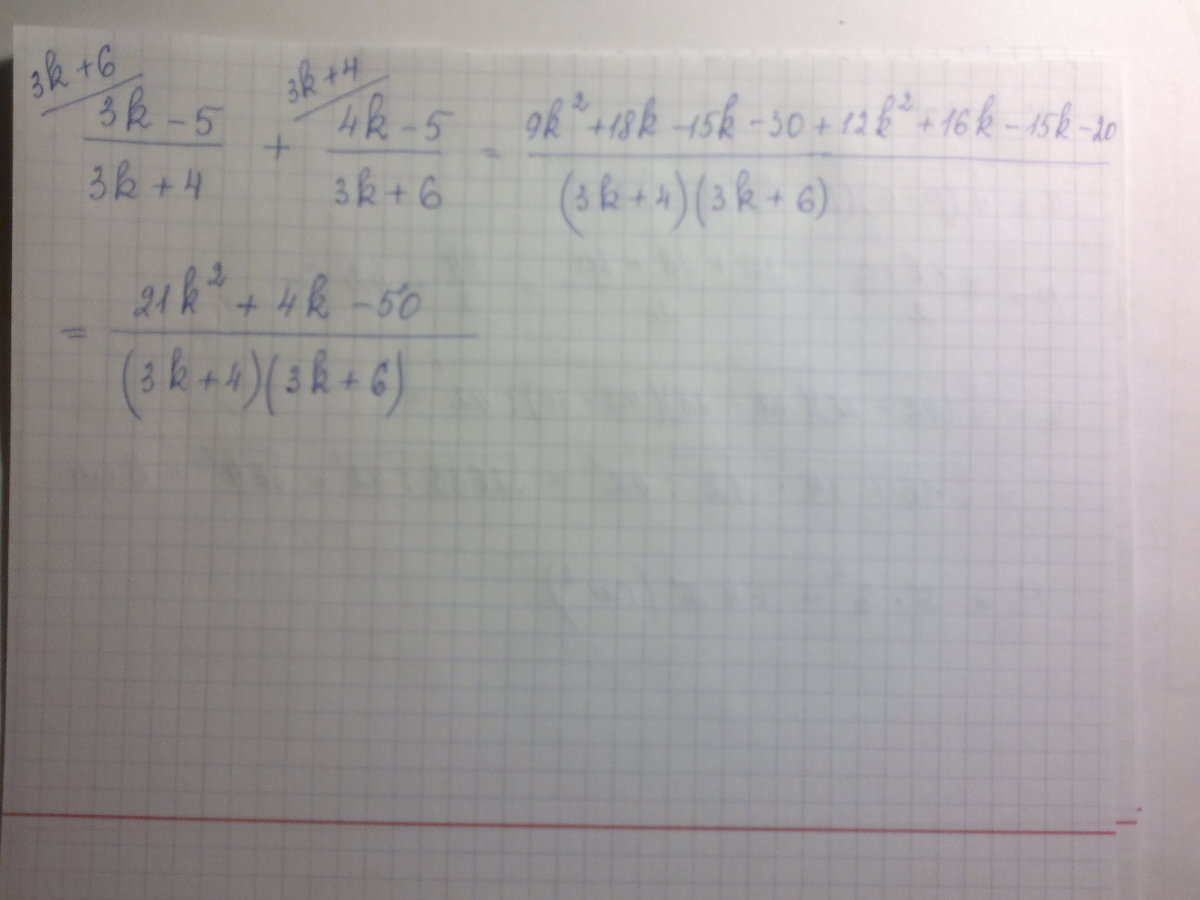 3k + 6 3k + 4
3k - 5 4k - 5 9k² + 18k - 15k - 30 + 12k² + 16k - 15k - 20
+ =
3k + 4 3k + 6 (3k + 4)(3k + 6)
21k² + 4k - 50
=
(3k + 4)(3k + 6)